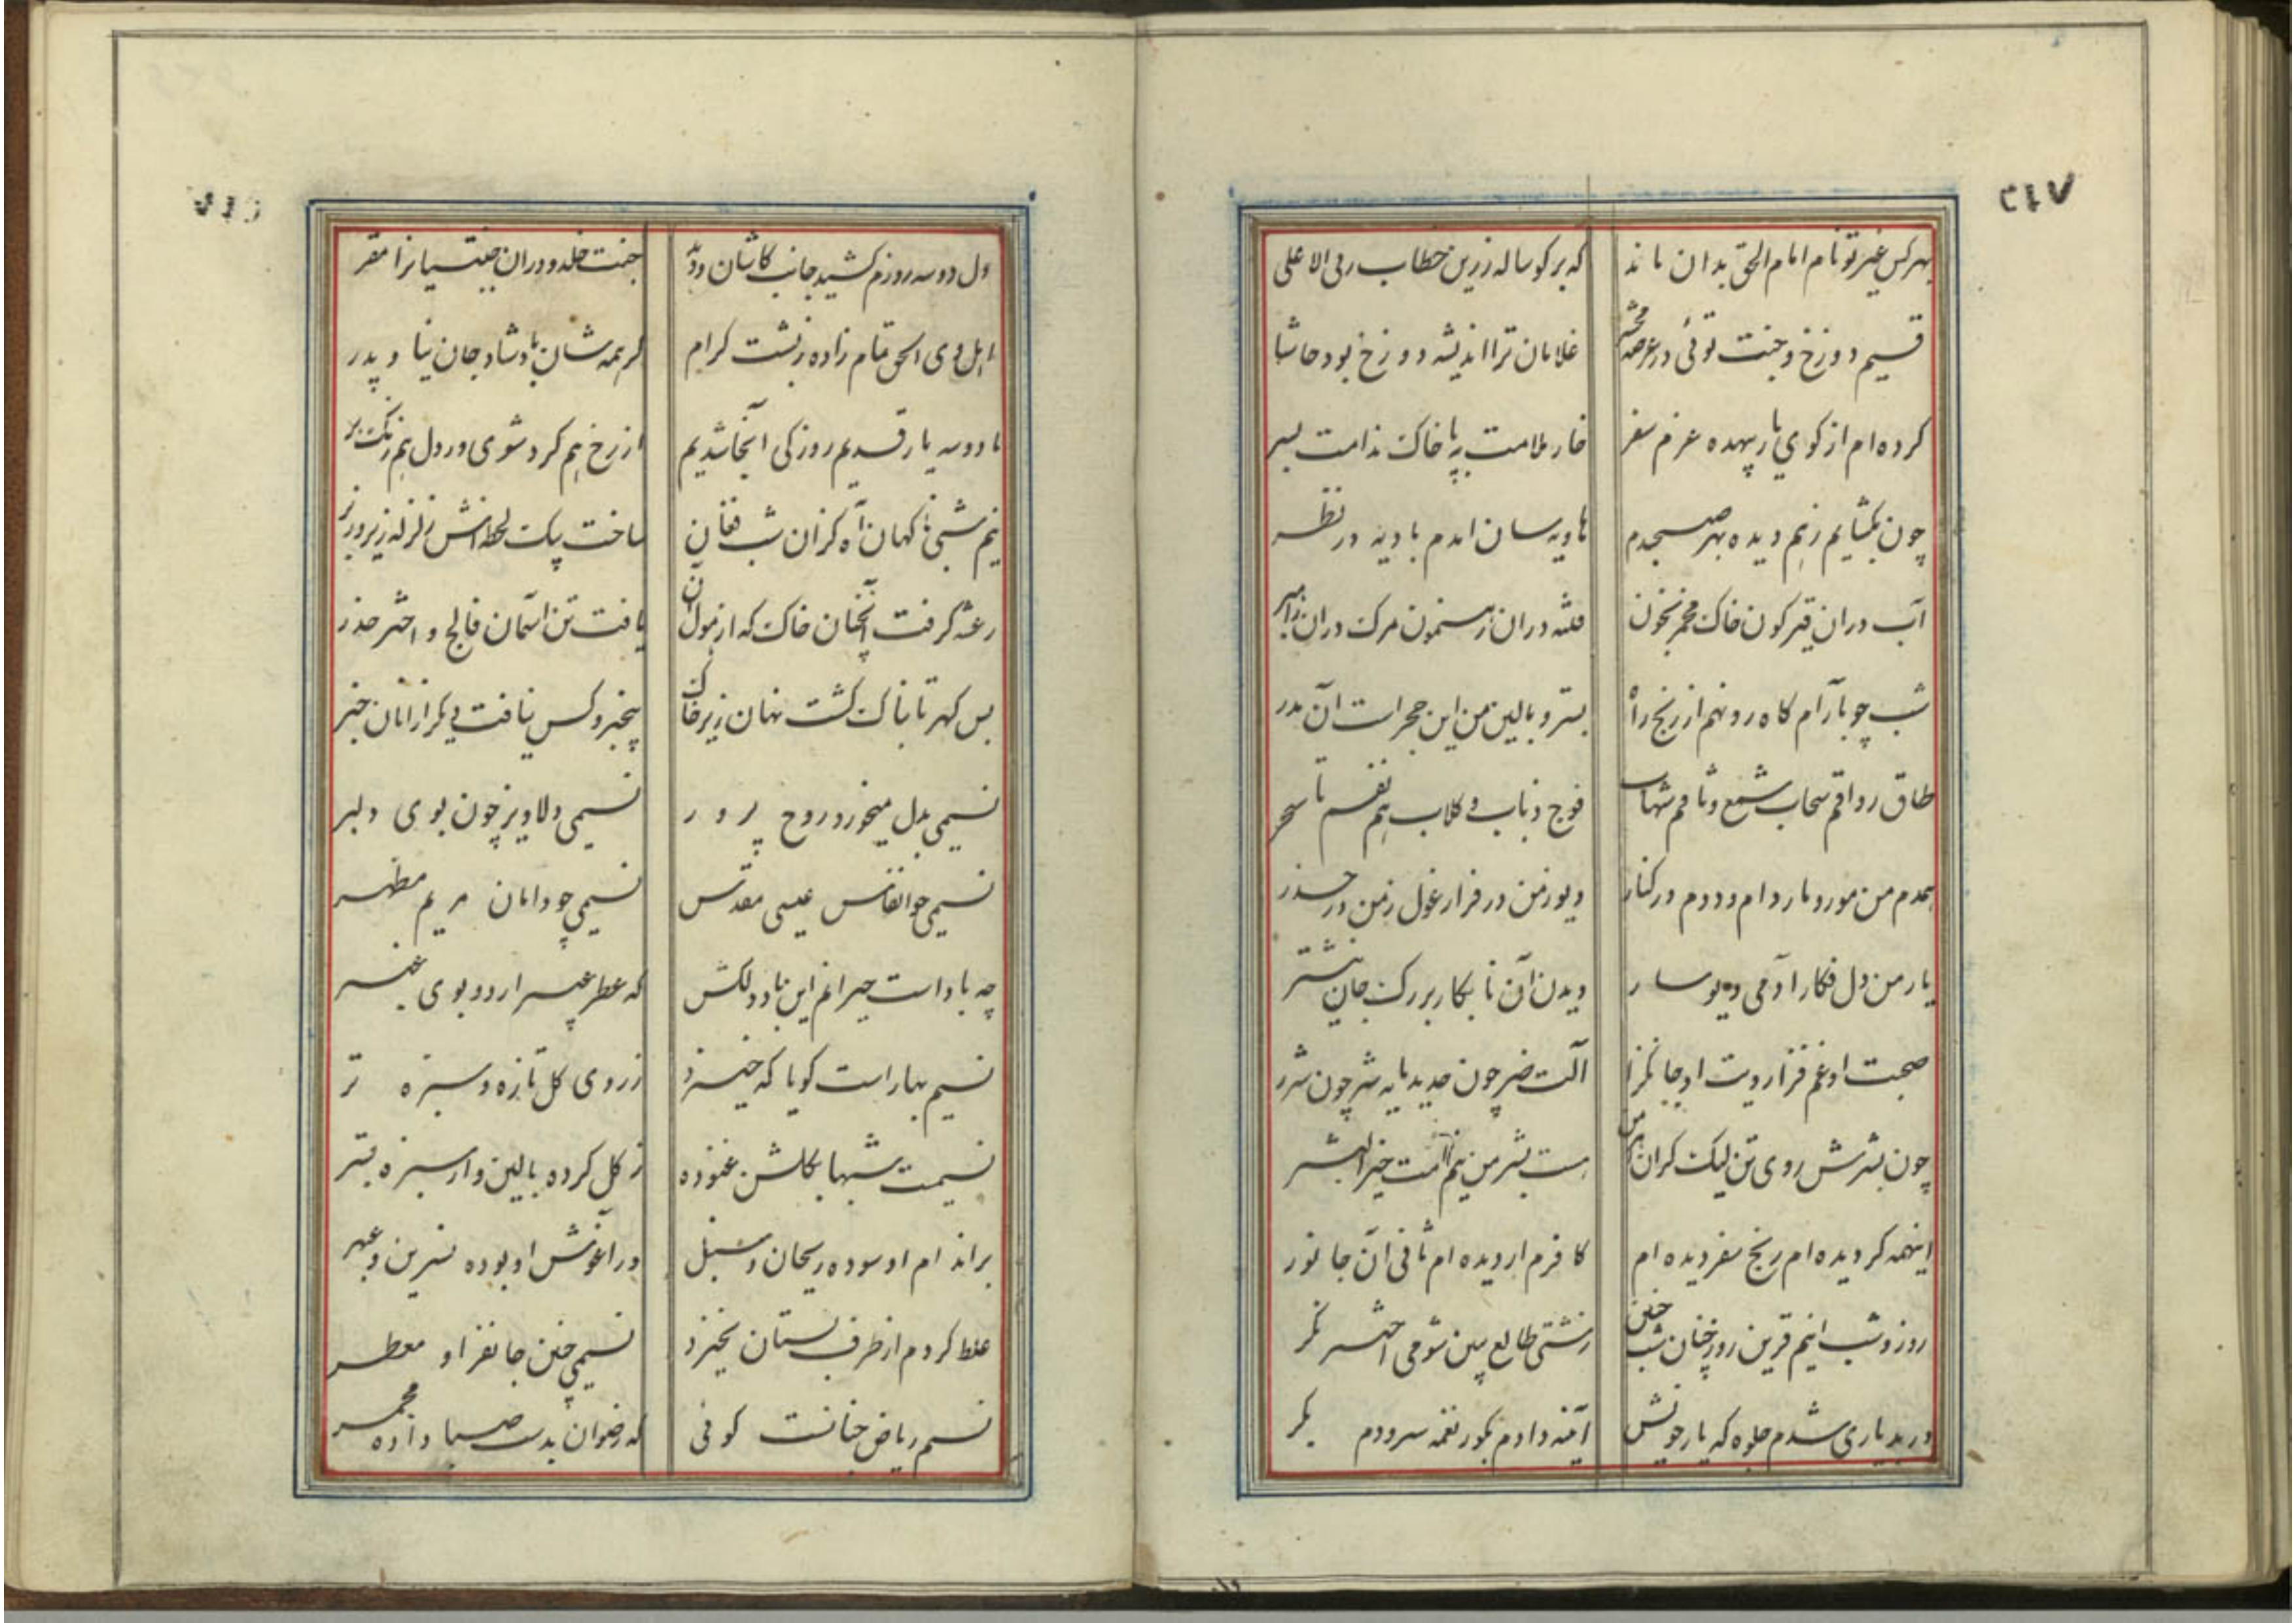 ۲۱۷
بهرکس غیر تو نام امام الحق بدان ماند
که بر کوساله زرین خطاب ربی الاعلی
قسیم دوزخ و جنت توئی در عرصه محشر
غلامان ترا اندیشه دوزخ بود حاشا
کرده ام از کوی یار بیهده عزم سفر
خار ملامت بپا خاک ندامت بسر
چون بکشایم زهم دیده بهر صبحدم
هاویه سان آیدم بادیه در نظر
آب در ان قیرکون خاک مخمر بخون
فتنه دران رهنمون مرک دران راهبر
شب چو بآرام کاه رو نهم از رنج راه
بستر و بالین من این حجر است آن مدر
طاق رواقم سحاب شمع وثاقم شهاب
فوج ذباب و کلاب هم نفسم تا سحر
همدم من مور و مار دام و ددم در کنار
دیو زمن در فرار غول زمن در حذر
یار من دل فکار آدمی دیو سار
دیدن آن نابکار بر رک جان نیشتر
صحبت او غم فزا رویت او جانکزا
آلت ضر چون حدید مایه شر چون شرر
چون بشرش روی تن لیک کران
هست بشر من نیم امت خیر البشر
اینهمه کردیده ام رنج سفر دیده ام
کافرم ار دیده ام ثانی آن جانور
روز و شب اینم قرین روز چنان شب چنین
زشتی طالع ببین شومی اختر نکر
در بد یاری شدم جلوه که یار خویش
آینه دادم بکور نغمه سرودم بکر
دل دو سه روزم کشید جانب کاشان ودید
جنت خلد و دران جنتیانرا مقر
اهل وی الحق تمام زاده زپشت کرام
کز همه شان باد شاد جان نیا و پدر
با دو سه یار قدیم روزکی آنجا شدیم
از رخ هم کرد شوی ور دل هم زنک بر
نیم شبی ناکهان آه کزان شب فغان
ساخت بیک لحظه اش زلزله زیر و زبر
رعشه کرفت آنچنان خاک که از هول آن
یافت تن آسمان فالج و اختر خدر
بس کهر تابناک کشت نهان زیر خاک
بیخبر و کس نیافت دیکر ازانان خبر
نسیمی بدل میخورد روح پرور
نسیمی دلاویز چون بوی دلبر
نسیمی چو انفاس عیسی مقدس
نسیمی چو دامان مریم مطهر
چه باد است حیرانم این باد دلکش
که عطر عبیر ارد و بوی عنبر
نسیم بهار است کویا که خیزد
ز روی کل تازه و سبزه تر
نسیمت شبها بکلشن غنوده
ز کل کرده بالین و از سبزه بستر
بر اندام او سوده ریحان و سنبل
در آغوش او بوده نسرین و عبهر
غلط کردم از طرف بستان نخیزد
نسیمی چنین جانفزا و معطر
نسیم ریاض جنانست کوئی
که رضوان بدست صبا داده مجمر